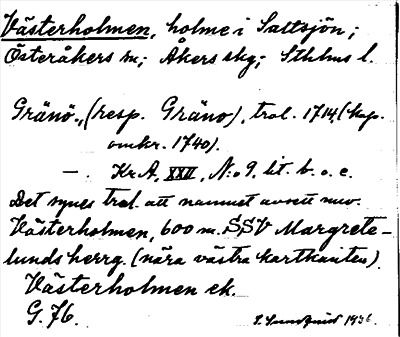 Västerholmen, holme i Saltsjön;
Österåkers sn; Åkers skg; Sthlms l.
Gränö, (resp. Gräno), trol. 1714, (kop.
omkr. 1740).
— . Kr.A, XXII, N:o 9, lit. b. o. c.
Det synes trol. att namnet avsett nuv.
Västerholmen, 600 m. SSV Margrete-
lunds herrg. (nära västra kartkanten).
Västerholmen ek.
G. 76. 1936.